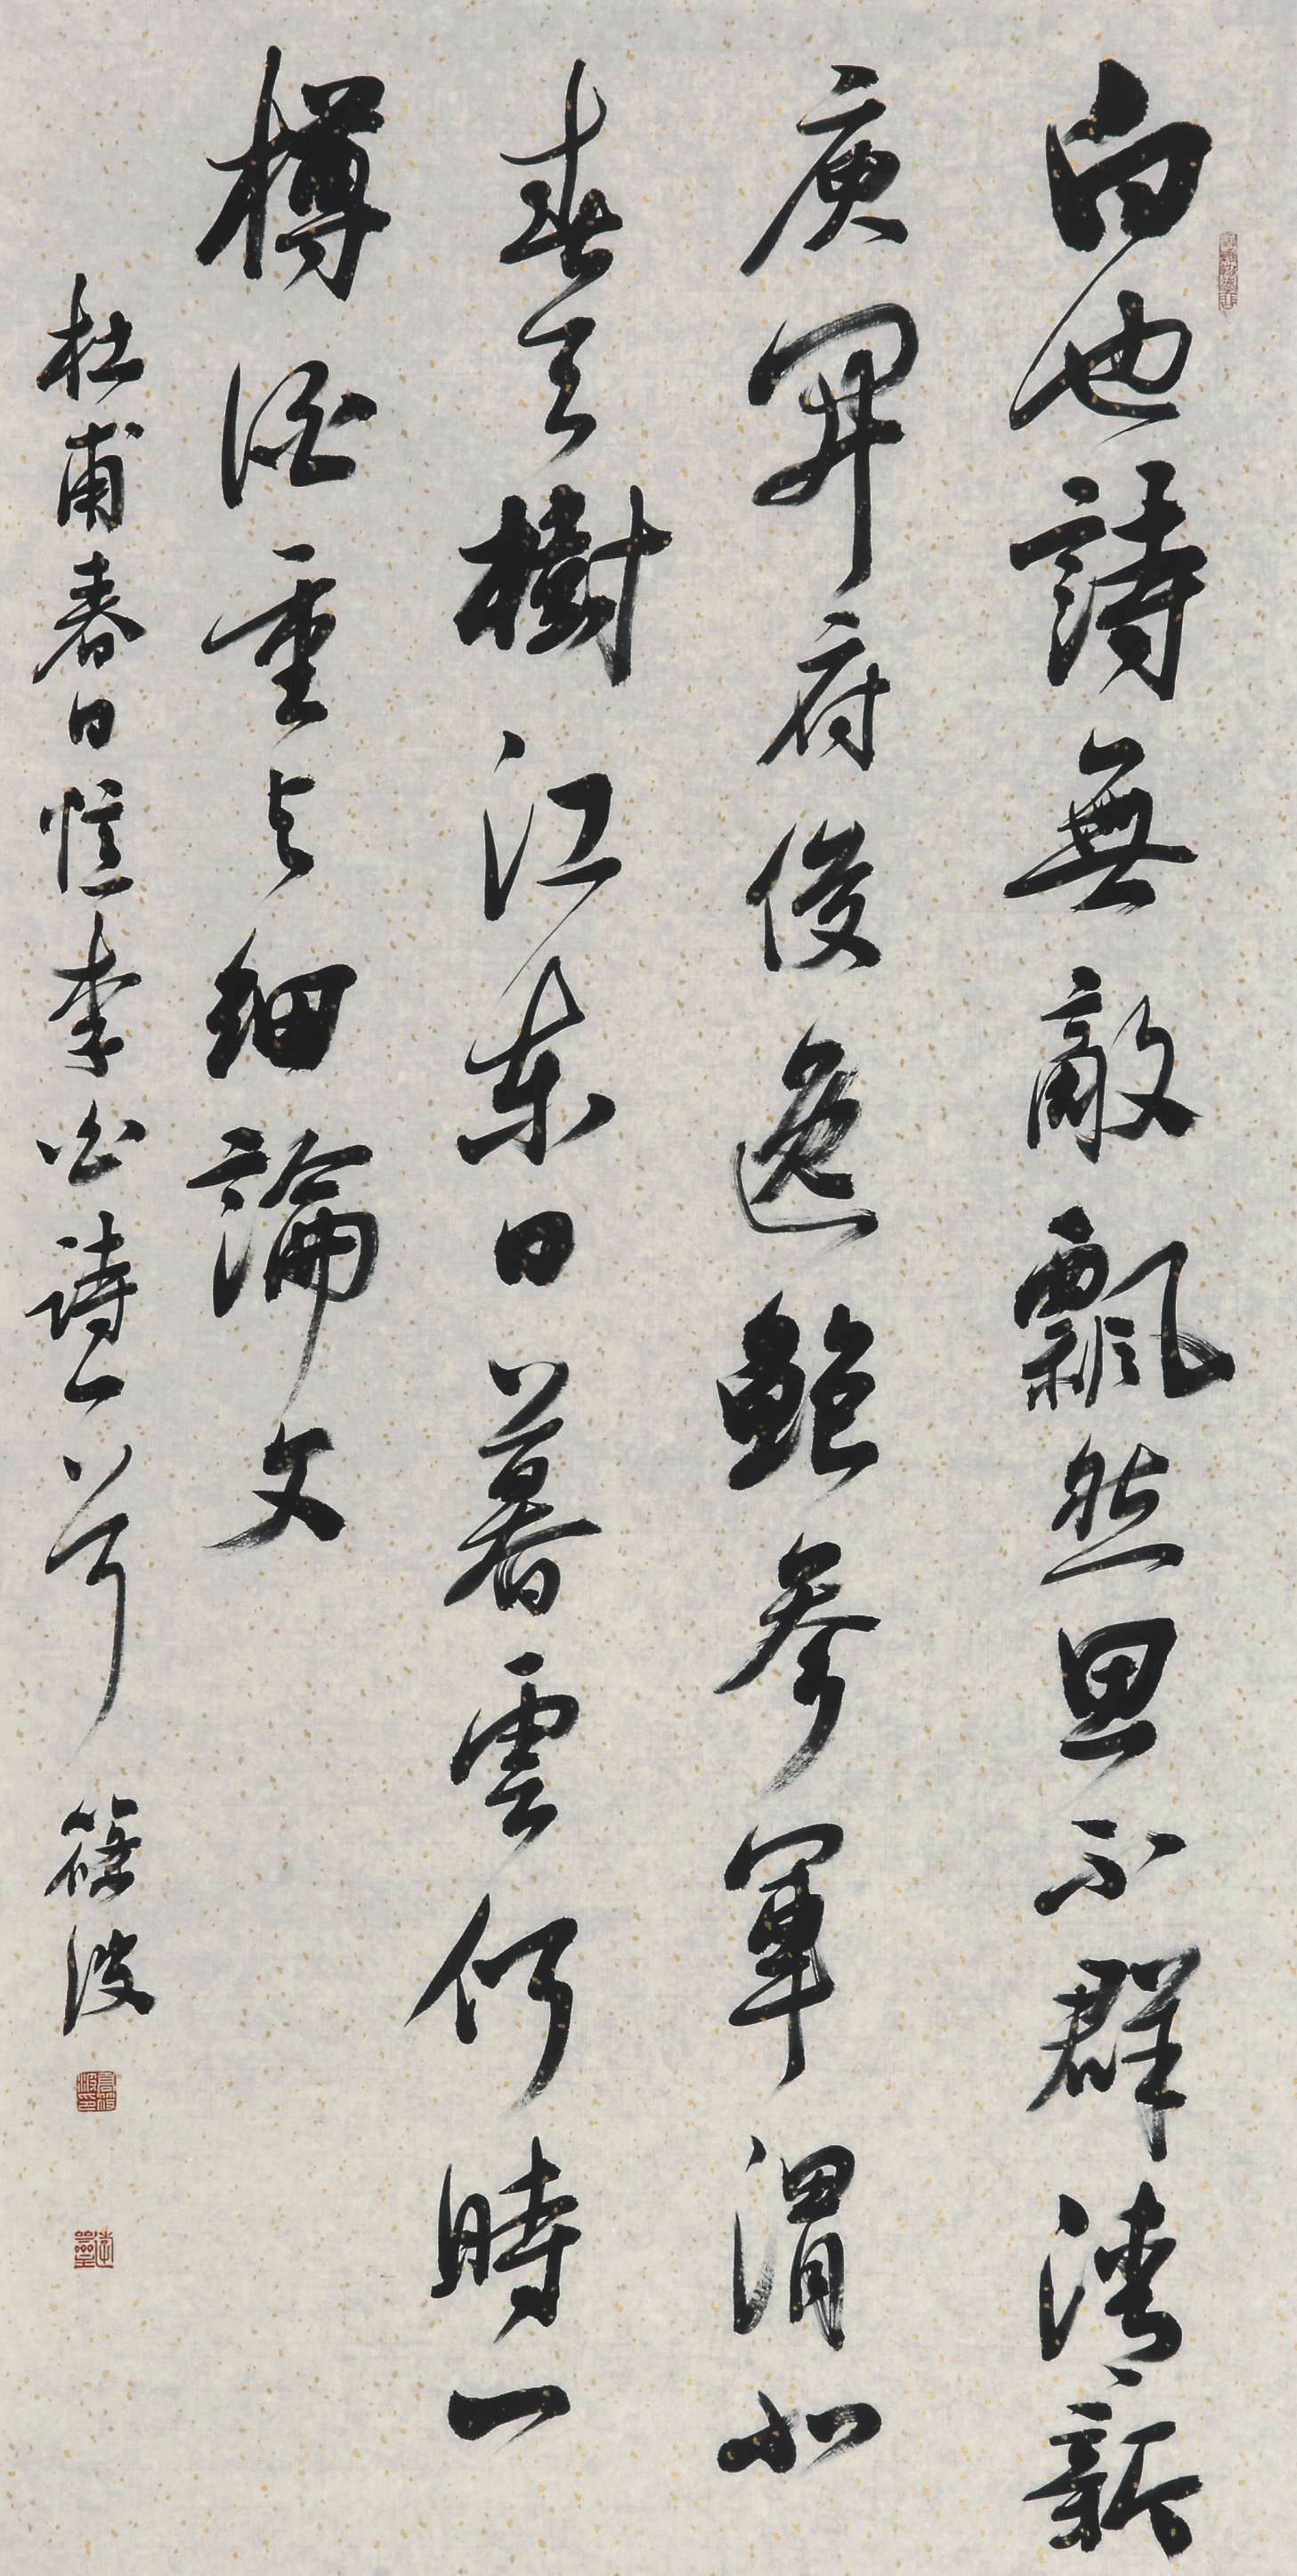 白也詩無敵飄然思不群清新
庾開府俊逸鮑參軍渭北
春天樹江東日暮雲何時一
樽酒重與細論文
杜甫春日憶李白詩一首 篠波